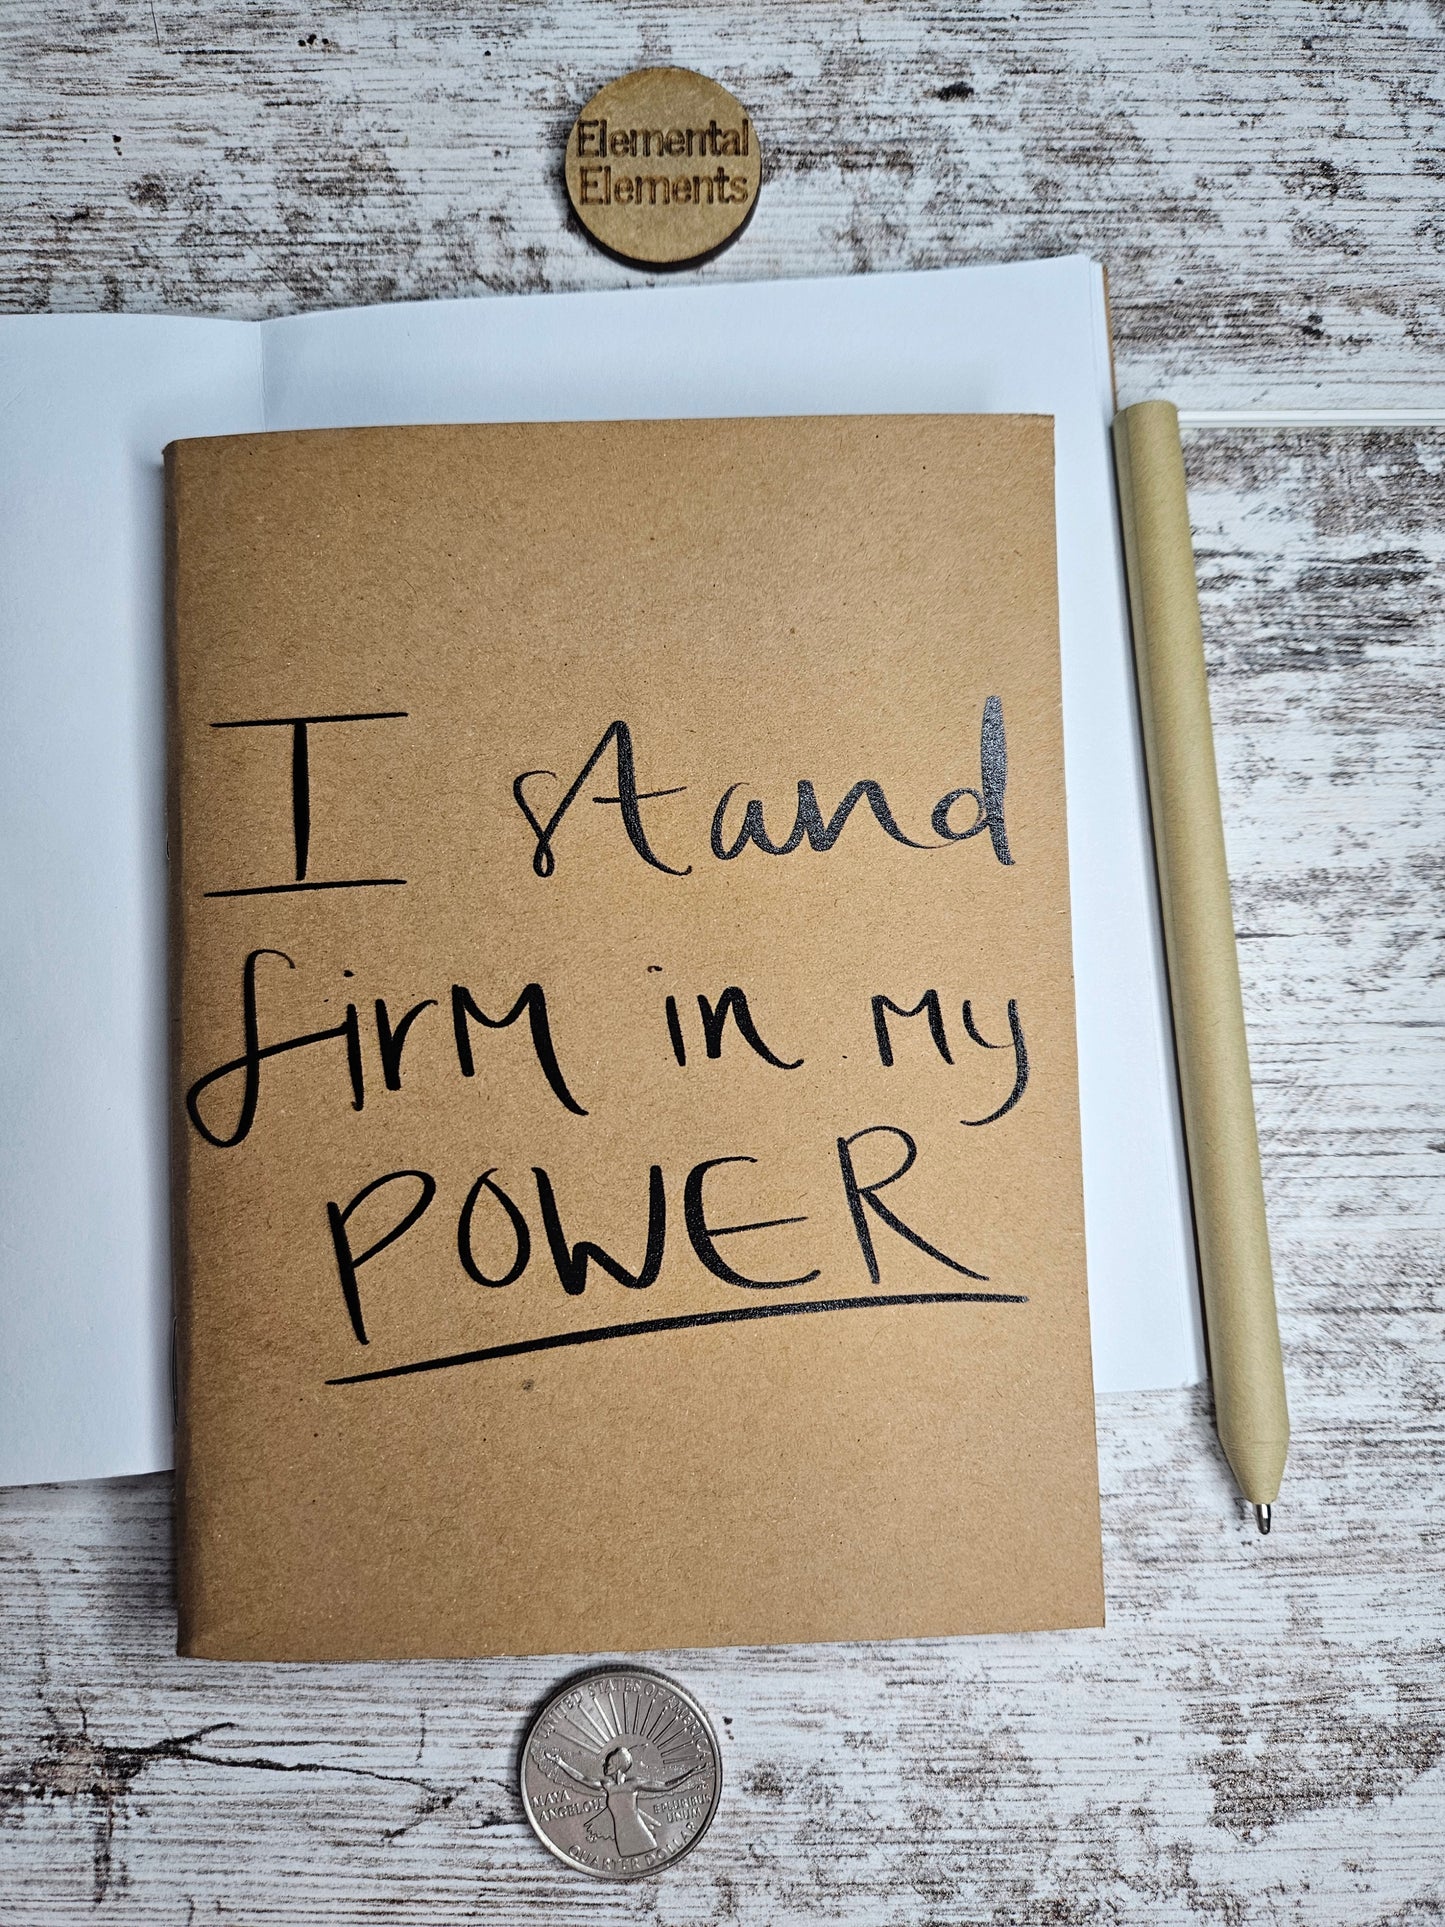 Elemental
Elements
I stand
firm in my
POWER
UNITED STATES OF AMERICA
MAYA
ANGELOU
E PLURIBUS
UNUM
QUARTER DOLLAR